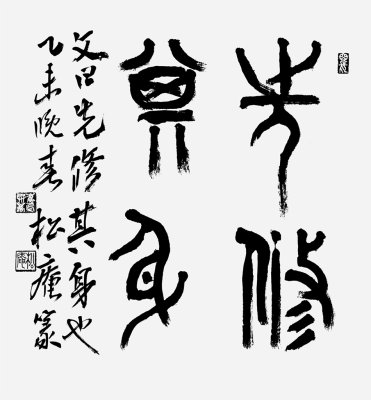 先修
其身
文曰先修其身也
乙未晚春松庵篆